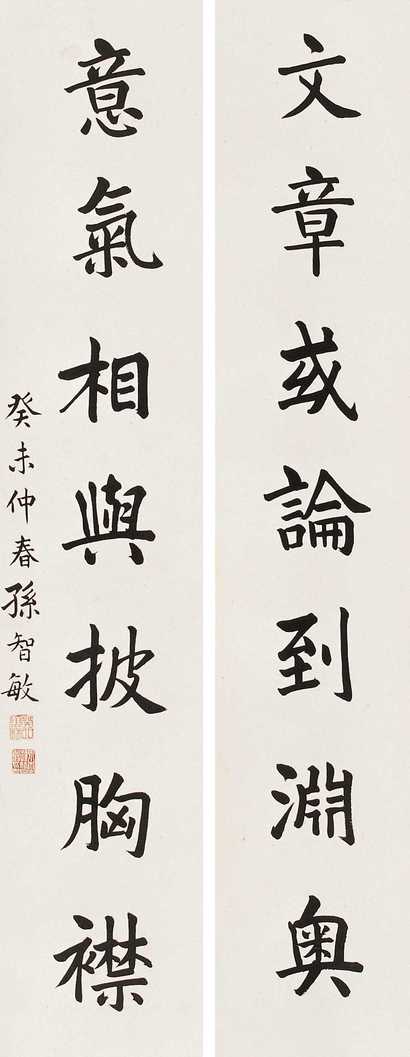 文章或論到淵奧
意氣相與披胸襟
癸未仲春孫智敏